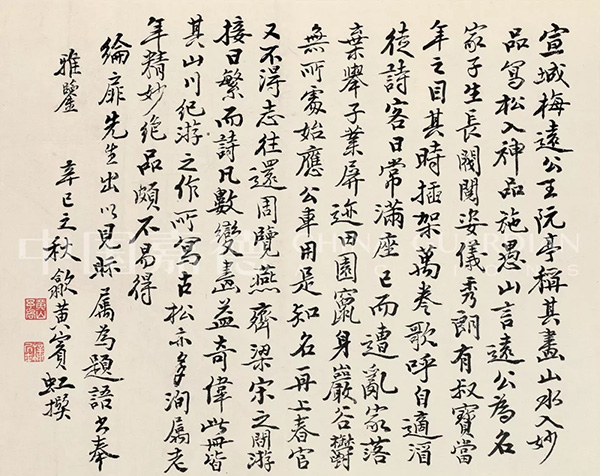 宣城梅遠公王阮亭稱其畫山水入妙
品寫松入神品施愚山言遠公為名
家子生長閥閱姿儀秀朗有叔寶當
年之目其時插架萬卷歌呼自適酒
徒詩客日常滿座已而遭亂家落
棄舉子業屏迹田園竄身巖谷鬱
無所 始應公車用是知名再上春官
又不得志往還周覽燕齊梁宋之間游
接日繁而詩凡數變畫益奇偉此冊皆
其山川紀游之作所寫古松亦多洵屬老
年精妙絕品頗不易得
綸扉先生出以見眎屬為題語書奉
雅鑒 辛巳立秋歙黃賓虹撰
中国嘉德
CHINA GUARDIAN